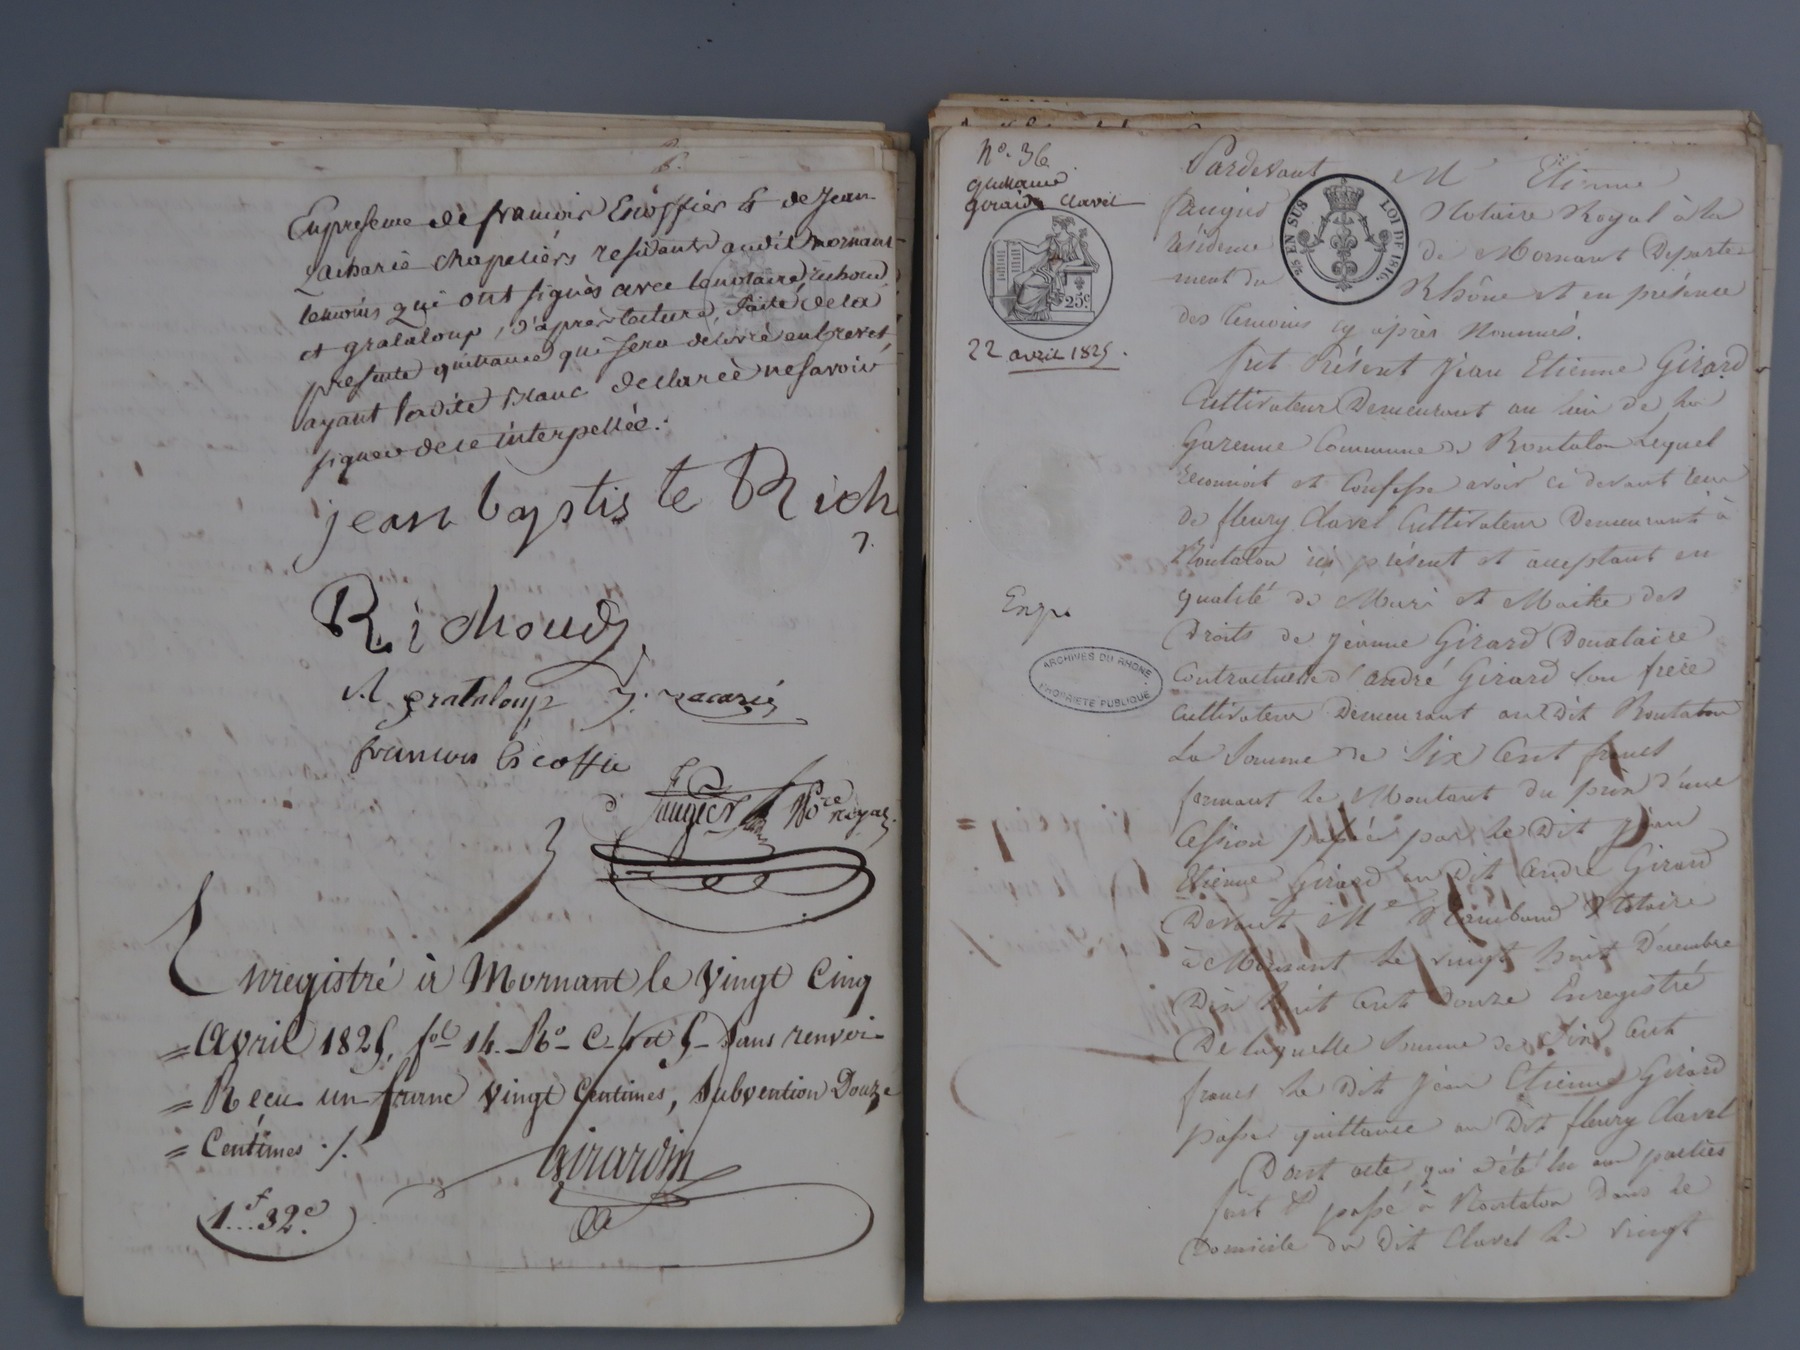 En presence de francois Escoffier & de Jean
Zacharie chapeliers residants audit mornant
temoins qui ont signés avec le notaire richoud
et grataloup, d'après lecture, faite de la
presente quittance qui sera delivrée en brevet,
ayant ladite Blanc declarée ne savoir
signer de ce interpellée.
jean baptiste Rich
Richoud
A grataloup J. zacarie
francois Escoffie
faugier Nore royal
Enregistré à Mornant le Vingt Cinq
= Avril 1825, fol 14 Ro C sans renvoi
= Recu un franc Vingt Centimes, Subvention Douze
= Centimes ./.
Girardin
1f..32c
No. 36
quittance
Girard à Clavel
25c
22 avril 1825.
Enrge
ARCHIVES DU RHONE
PROPRIETE PUBLIQUE
25 EN SUS LOI DE 1816.
Pardevant Me Etienne
faugier Notaire Royal à la
résidence de Mornant Departe-
ment du Rhône et en présence
des temoins cy après Nommés.
fut Présent Jean Etienne Girard
Cultivateur Demeurant au lieu de la
Garenne Commune de Rontalon Lequel
reconnoit et Confesse avoir ci devant reçu
de fleury Clavel Cultivateur Demeurant à
Rontalon ici présent et acceptant en
qualité de Mari et Maitre des
Droits de Jeanne Girard Donataire
Contractuelle d'andré Girard son frère
Cultivateur Demeurant au Dit Rontalon
La Somme de Six Cent francs
formant le Montant du prix d'une
Cession passée par le Dit Jean
Etienne Girard au Dit andré Girard
Devant Me Notaire
à Mornant le vingt huit Décembre
Dix huit Cent Douze Enregistré
De laquelle Somme de Six Cent
francs le Dit Jean Etienne Girard
passe quittance au Dit fleury Clavel
Dont acte, qui a été lu aux parties
fait & passé à Rontalon Dans le
Domicile du Dit Clavel le vingt